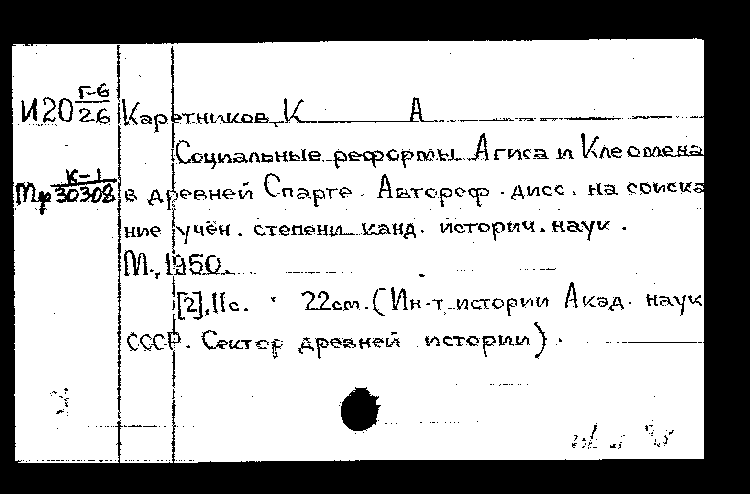 И20 Г-6/26 Каретников, К А
Социальные реформы Агиса и Клеомена
Тр К-1/30308 в древней Спарте. Автореф. дисс. на соиска
ние учён. степени канд. историч. наук.
М., 1950.
[2], 11с. 22см. (Ин-т истории Акад. наук
СССР. Сектор древней истории).